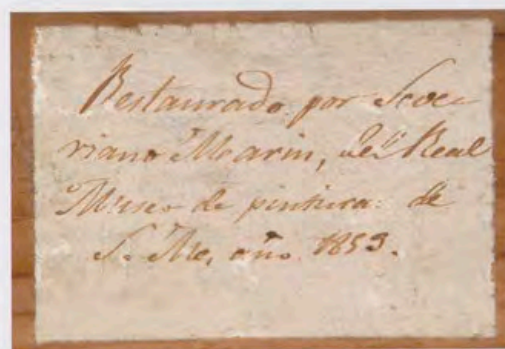 Restaurado por Seve-
riano Marin, del Real
Museo de pintura de
S. M., año 1853.